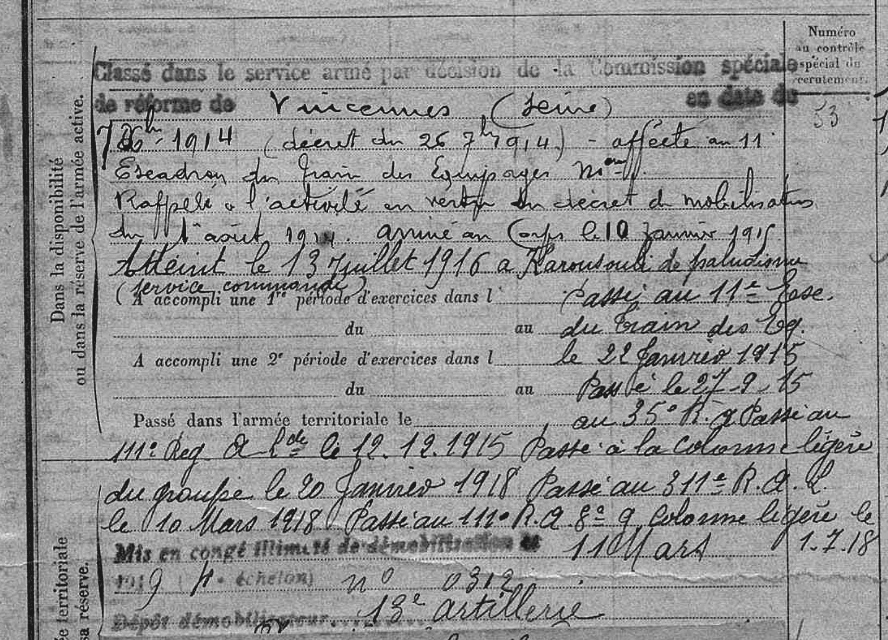 Numéro
au contrôle
spécial du
recrutement.
53
Dans la disponibilité
ou dans la réserve de l'armée active.
Classé dans le service armé par décision de la Commission spéciale
de réforme de Vincennes (Seine) en date du
1914 (décret du 26 7bre 1914) - affecté au 11
Escadron du Train des Equipages
Rappelé à l'activité en vertu du décret de mobilisation
du 1er août 1914. arrivé au Corps le 10 Janvier 1915
Atteint le 13 Juillet 1916 a Karousouli de paludisme
(service commandé)
A accompli une 1re période d'exercices dans l Passé au 11e Esc.
du au du Train des Eq.
A accompli une 2e période d'exercices dans l le 22 Janvier 1915
du au Passé le 27-9-15
Passé dans l'armée territoriale le au 35e R.a Passé au
111e Reg A Lde le 12.12.1915 Passé à la colonne légère
du groupe le 20 Janvier 1918 Passé au 311e R.A.L.
le 10 Mars 1918. Passé au 111e R.A colonne légère le
1.7.18
Mis en congé illimité de démobilisation le 11 Mars
1919 4e échelon) no 0312
Dépôt démobilisateur 13e artillerie